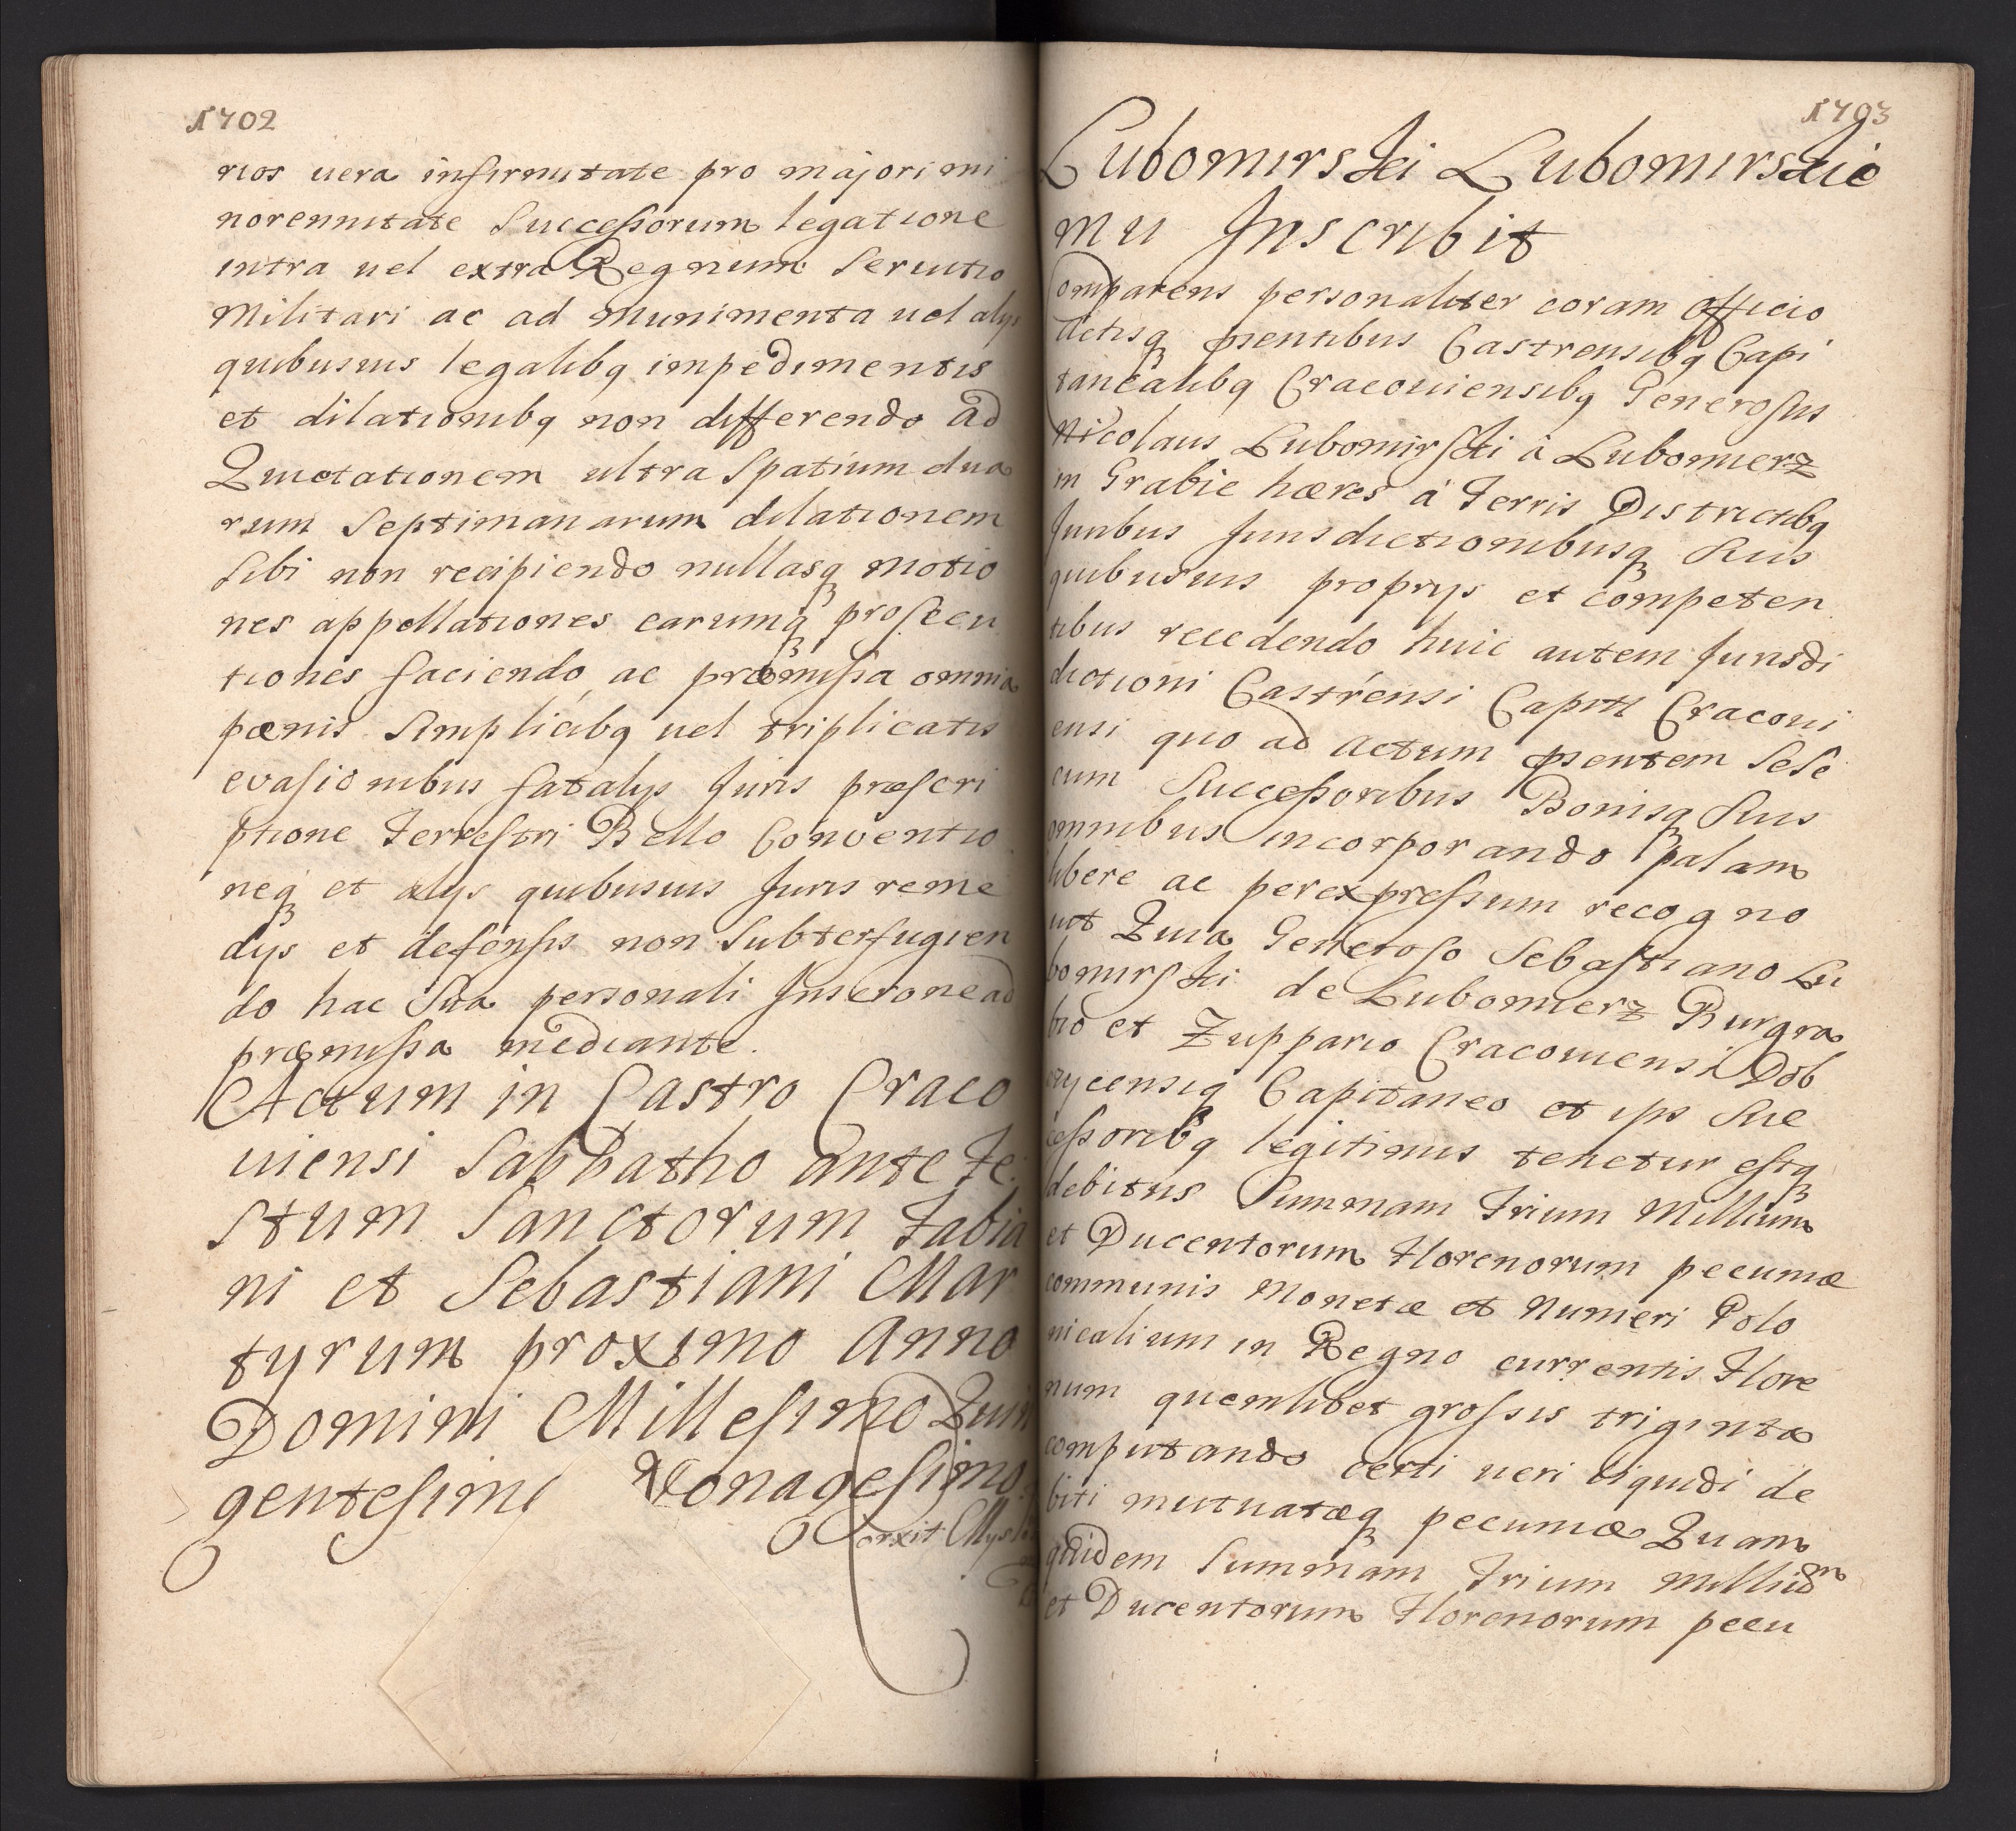 1702
rios uera infirmitate pro majori mi
norennitate Successorum legatione
intra uel extra Regnum Seruitio
Militari ac ad munimenta uel alys
quibusuis legalibq impedimentis
et dilationibq non differendo ad
Quietationem ultra Spatium dua
rum Septimanarum dilationem
Sibi non recipiendo nullasq motio
nes appellationes earumq prosecu
tiones faciendo ac præmissa omnia
pænis Simplicibq uel triplicatis
evasionibus fatalys Juris præscri
ptione Terrestri Bello Conventio
neq et alys quibusuis Juris reme
dys et defensis non Subterfugien
do hac Sua personali Inscrone ad
præmissa mediante.
Actum in Castro Craco
uiensi Sabbatho ante Fe
stum Sanctorum Fabia
ni et Sebastiani Mar
tyrum proximo Anno
Domini Millesimo Quin
gentesimo Nonagesimo
1703
Lubomirski Lubomirskie
mu Inscribit
Comparens personaliter coram Officio
Actisq pñentibus Castrensibq Capi
taneàlibq Cracouiensibq Generosus
Nicolaus Lubomirski à Lubomierz
in Grabie hæres à Terris Districtibq
Juribus Jurisdictionibusq Suis
quibusuis proprys et competen
tibus recedendo huic autem Jurisdi
dictioni Castrensi Capitli Cracoui
ensi quo ad Actum pñentem Sese
cum Successoribus Bonisq Suis
omnibus incorporando palam
libere ac per expressum recogno
uit Quia Generoso Sebastiano Lu
bomirski de Lubomierz Burgra
bio et Zuppario Cracouiensi Dob
czycensiq Capitaneo et ips Suc
cessoribq legitimis tenetur estq
debitus Summam Trium Millium
et Ducentorum Florenorum pecuniæ
communis Monetæ et Numeri Polo
nicalium in Regno currentis Flore
num quemlibet grossis triginta
computando certi ueri liquidi de
biti mutuatæq pecuniæ Quam
quidem Summam Trium Millium
et Ducentorum Florenorum pecu